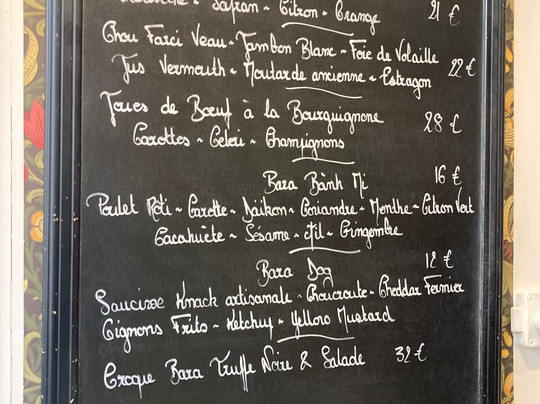 Safran ~ Citron ~ Orange 21 €
Chou Farci Veau ~ Jambon Blanc ~ Foie de Volaille
Jus Vermouth ~ Moutarde ancienne ~ Estragon 22 €
Joues de Bœuf à la Bourguignone
28 €
Carottes ~ Celeri ~ Champignons
Bara Bành Mi 16 €
Poulet Rôti ~ Carotte ~ Daïkon ~ Coriandre ~ Menthe ~ Citron Vert
Cacahuète ~ Sésame ~ Ail ~ Gingembre
Bara Dog 12 €
Saucisse Knack artisanale ~ Choucroute ~ Cheddar Fermier
Oignons Frits ~ Ketchup ~ Yellow Mustard
Croque Bara Truffe Noire & Salade 32 €